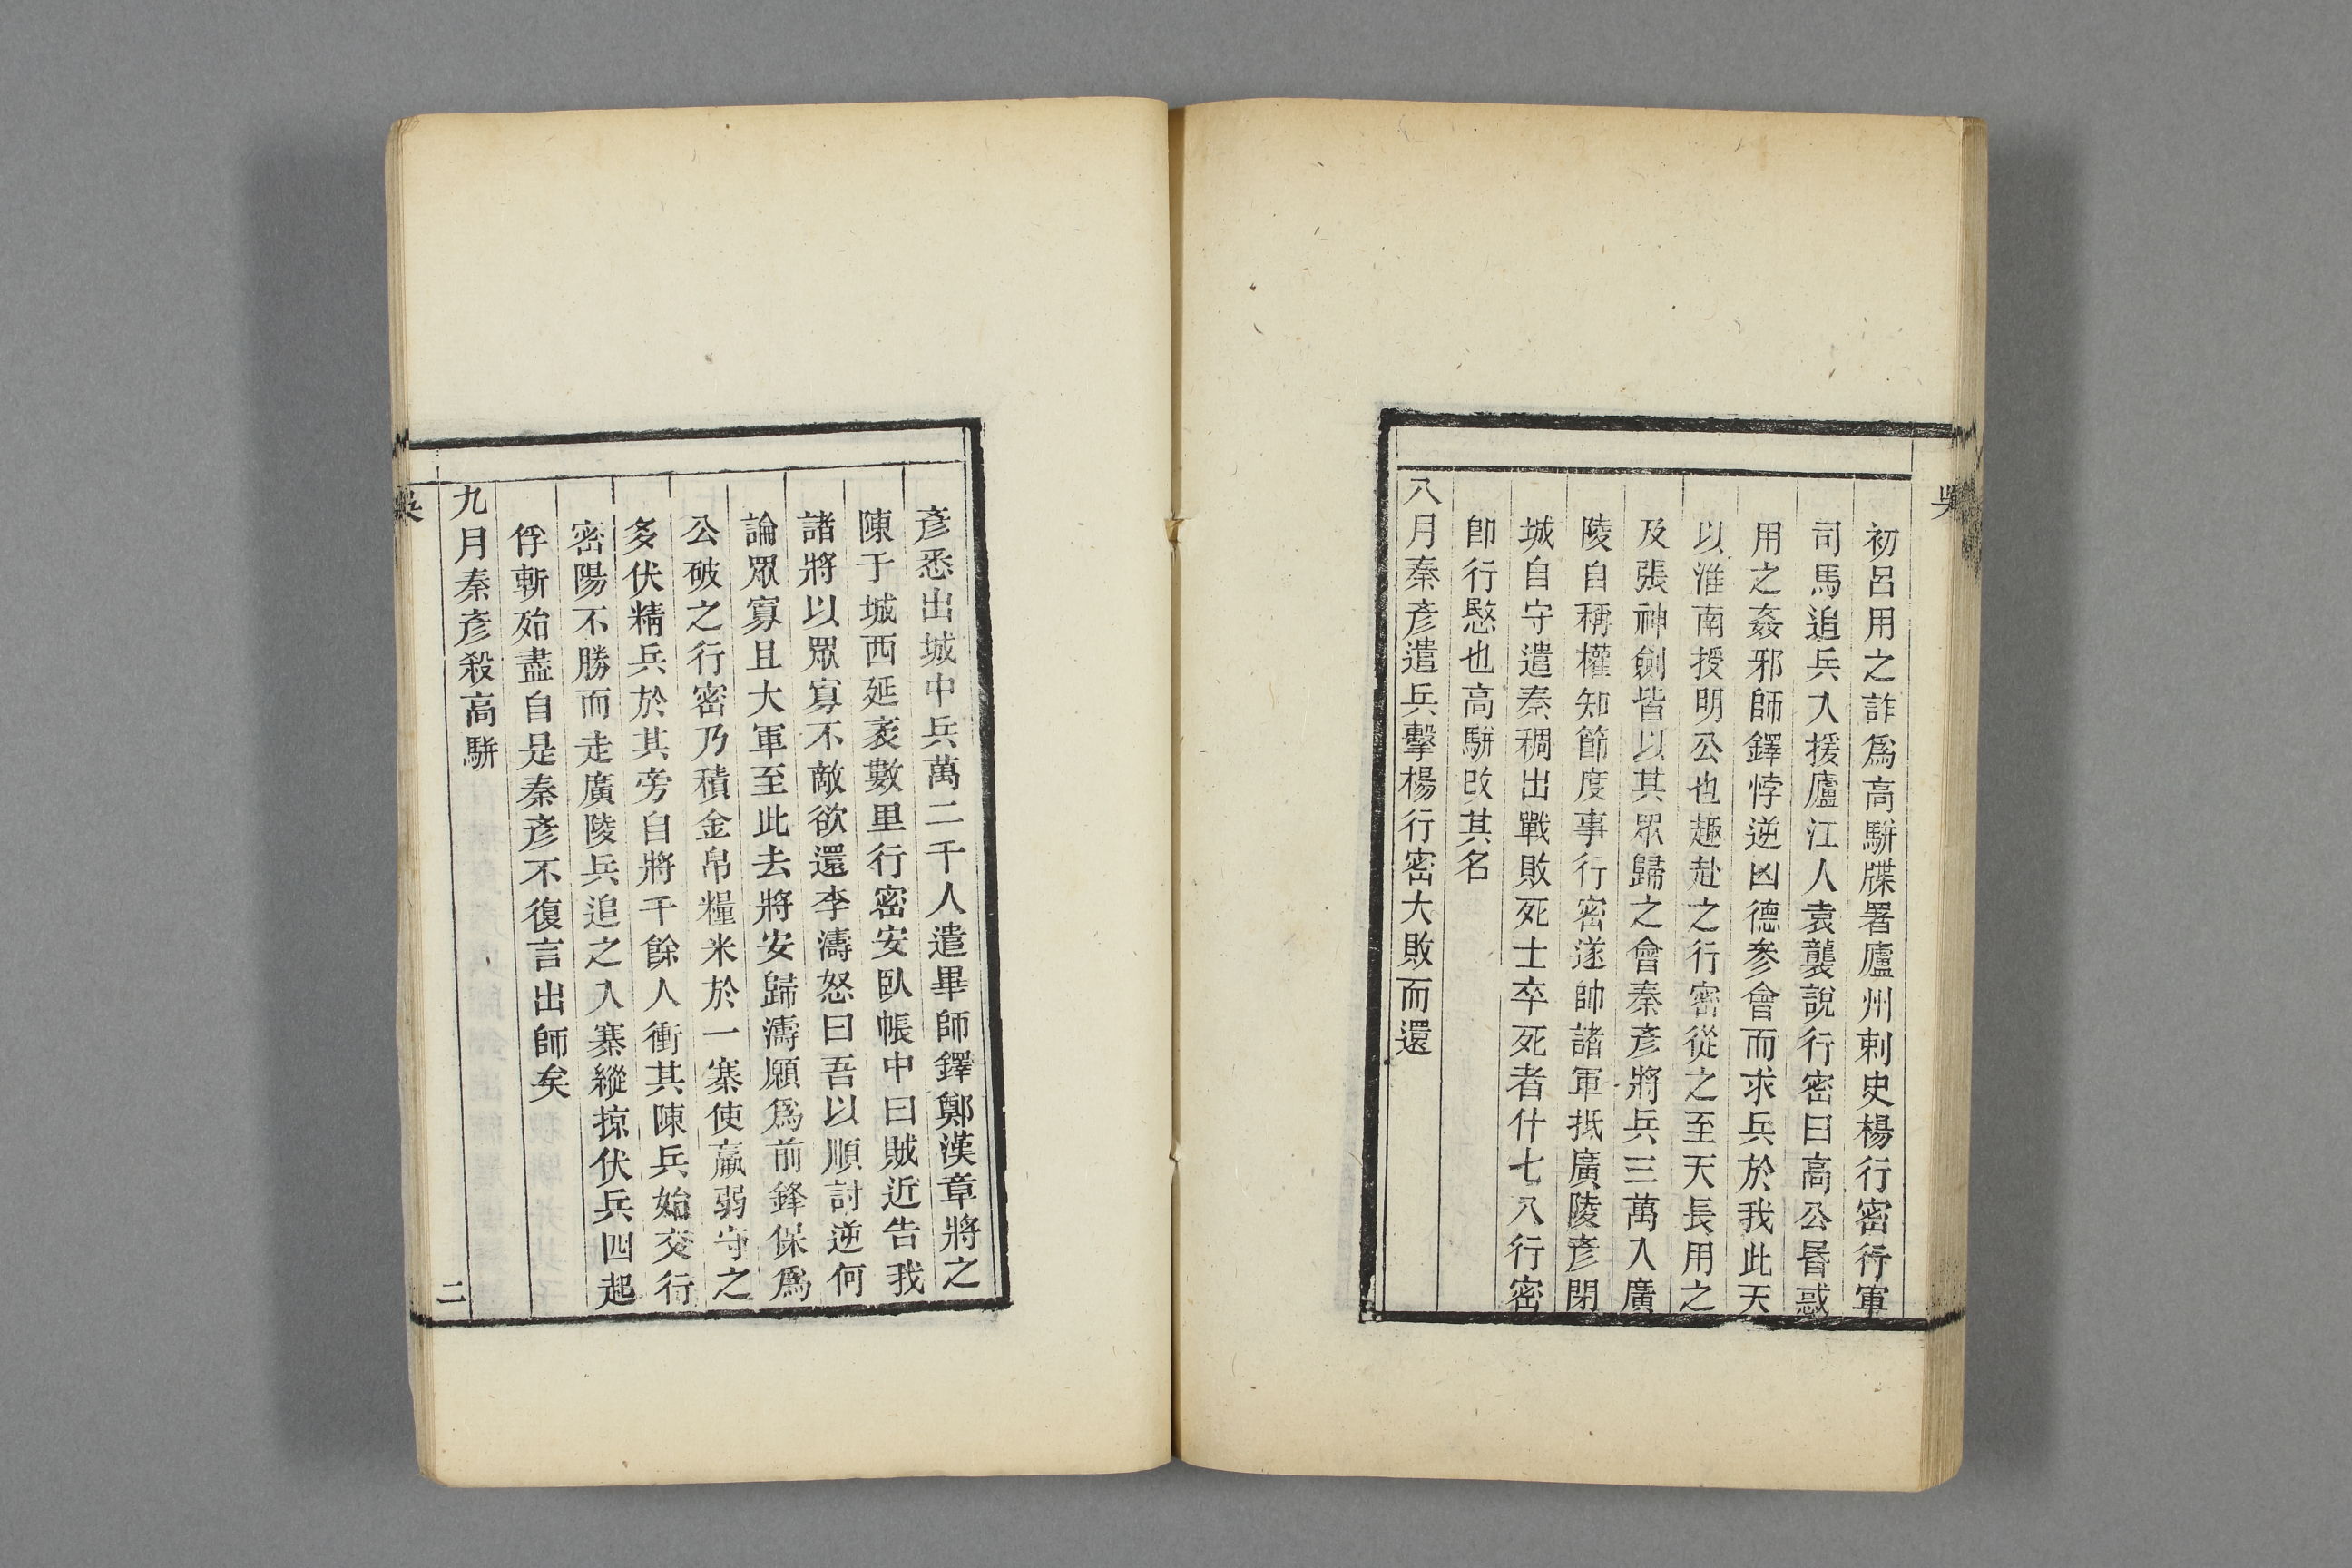 吳
初呂用之詐爲高駢牒署廬州刺史楊行密行軍
司馬追兵入援廬江人袁襲說行密曰高公昬惑
用之姦邪師鐸悖逆凶德參會而求兵於我此天
以淮南授明公也趣赴之行密從之至天長用之
及張神劍皆以其眾歸之會秦彥將兵三萬入廣
陵自稱權知節度事行密遂帥諸軍抵廣陵彥閉
城自守遣秦稠出戰敗死士卒死者什七八行密
卽行愍也高駢改其名
八月秦彥遣兵擊楊行密大敗而還
彥悉出城中兵萬二千人遣畢師鐸鄭漢章將之
陳于城西延袤數里行密安臥帳中曰賊近告我
諸將以眾寡不敵欲還李濤怒曰吾以順討逆何
論眾寡且大軍至此去將安歸濤願爲前鋒保爲
公破之行密乃積金帛糧米於一寨使羸弱守之
多伏精兵於其旁自將千餘人衝其陳兵始交行
密陽不勝而走廣陵兵追之入寨縱掠伏兵四起
俘斬殆盡自是秦彥不復言出師矣
九月秦彥殺高駢
吳
二